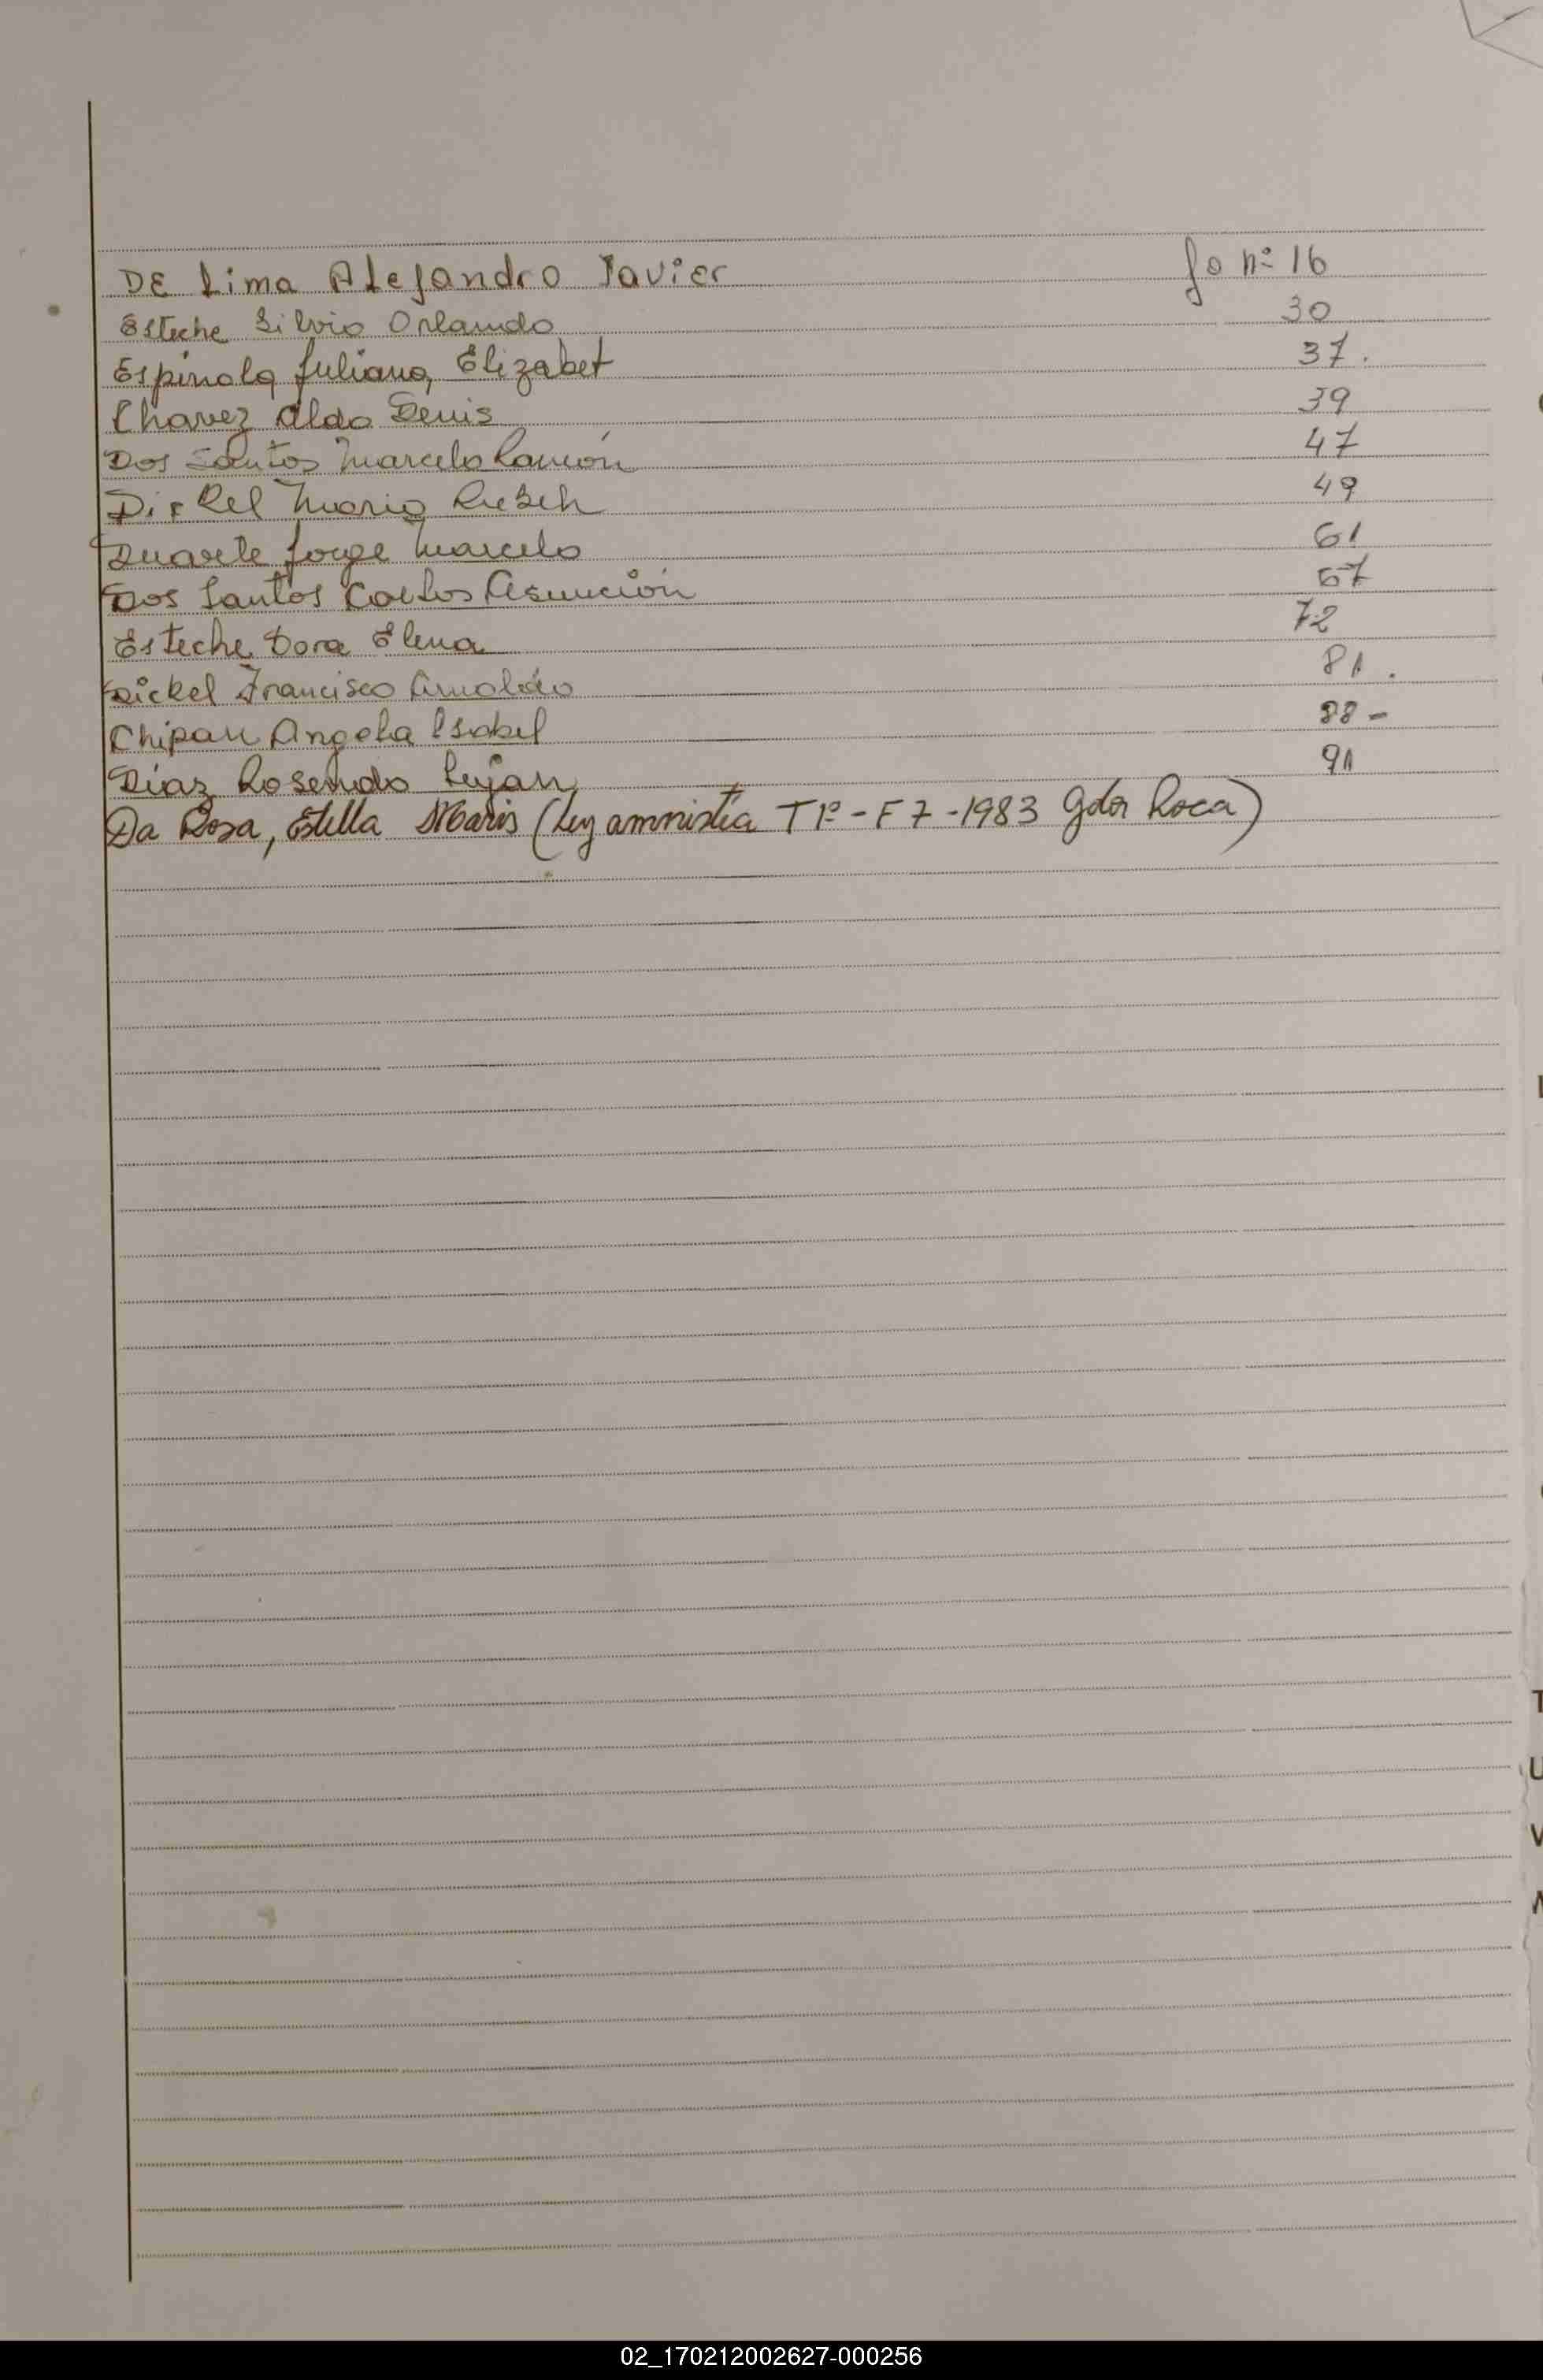 DE Lima Alejandro Javier fo nº 16
Esteche Silvio Orlando 30
Espinola Juliana, Elizabet 37.
Chavez Aldo Denis 39
Dos Santos Marcelo Ramón 47
Dickel Mario 49
Duarte Jorge Marcelo 61
Dos Santos Carlos Asunción 67
Esteche Dora Elena 72
Dickel Francisco Arnoldo 81.
Chipau Angela Isabel 88-
Díaz Rosendo Lujan 91
Da Rosa, Estella Maris (Ley amnistía Tº - F 7 - 1983 Gdor Roca)
T
U
V
02_170212002627-000256